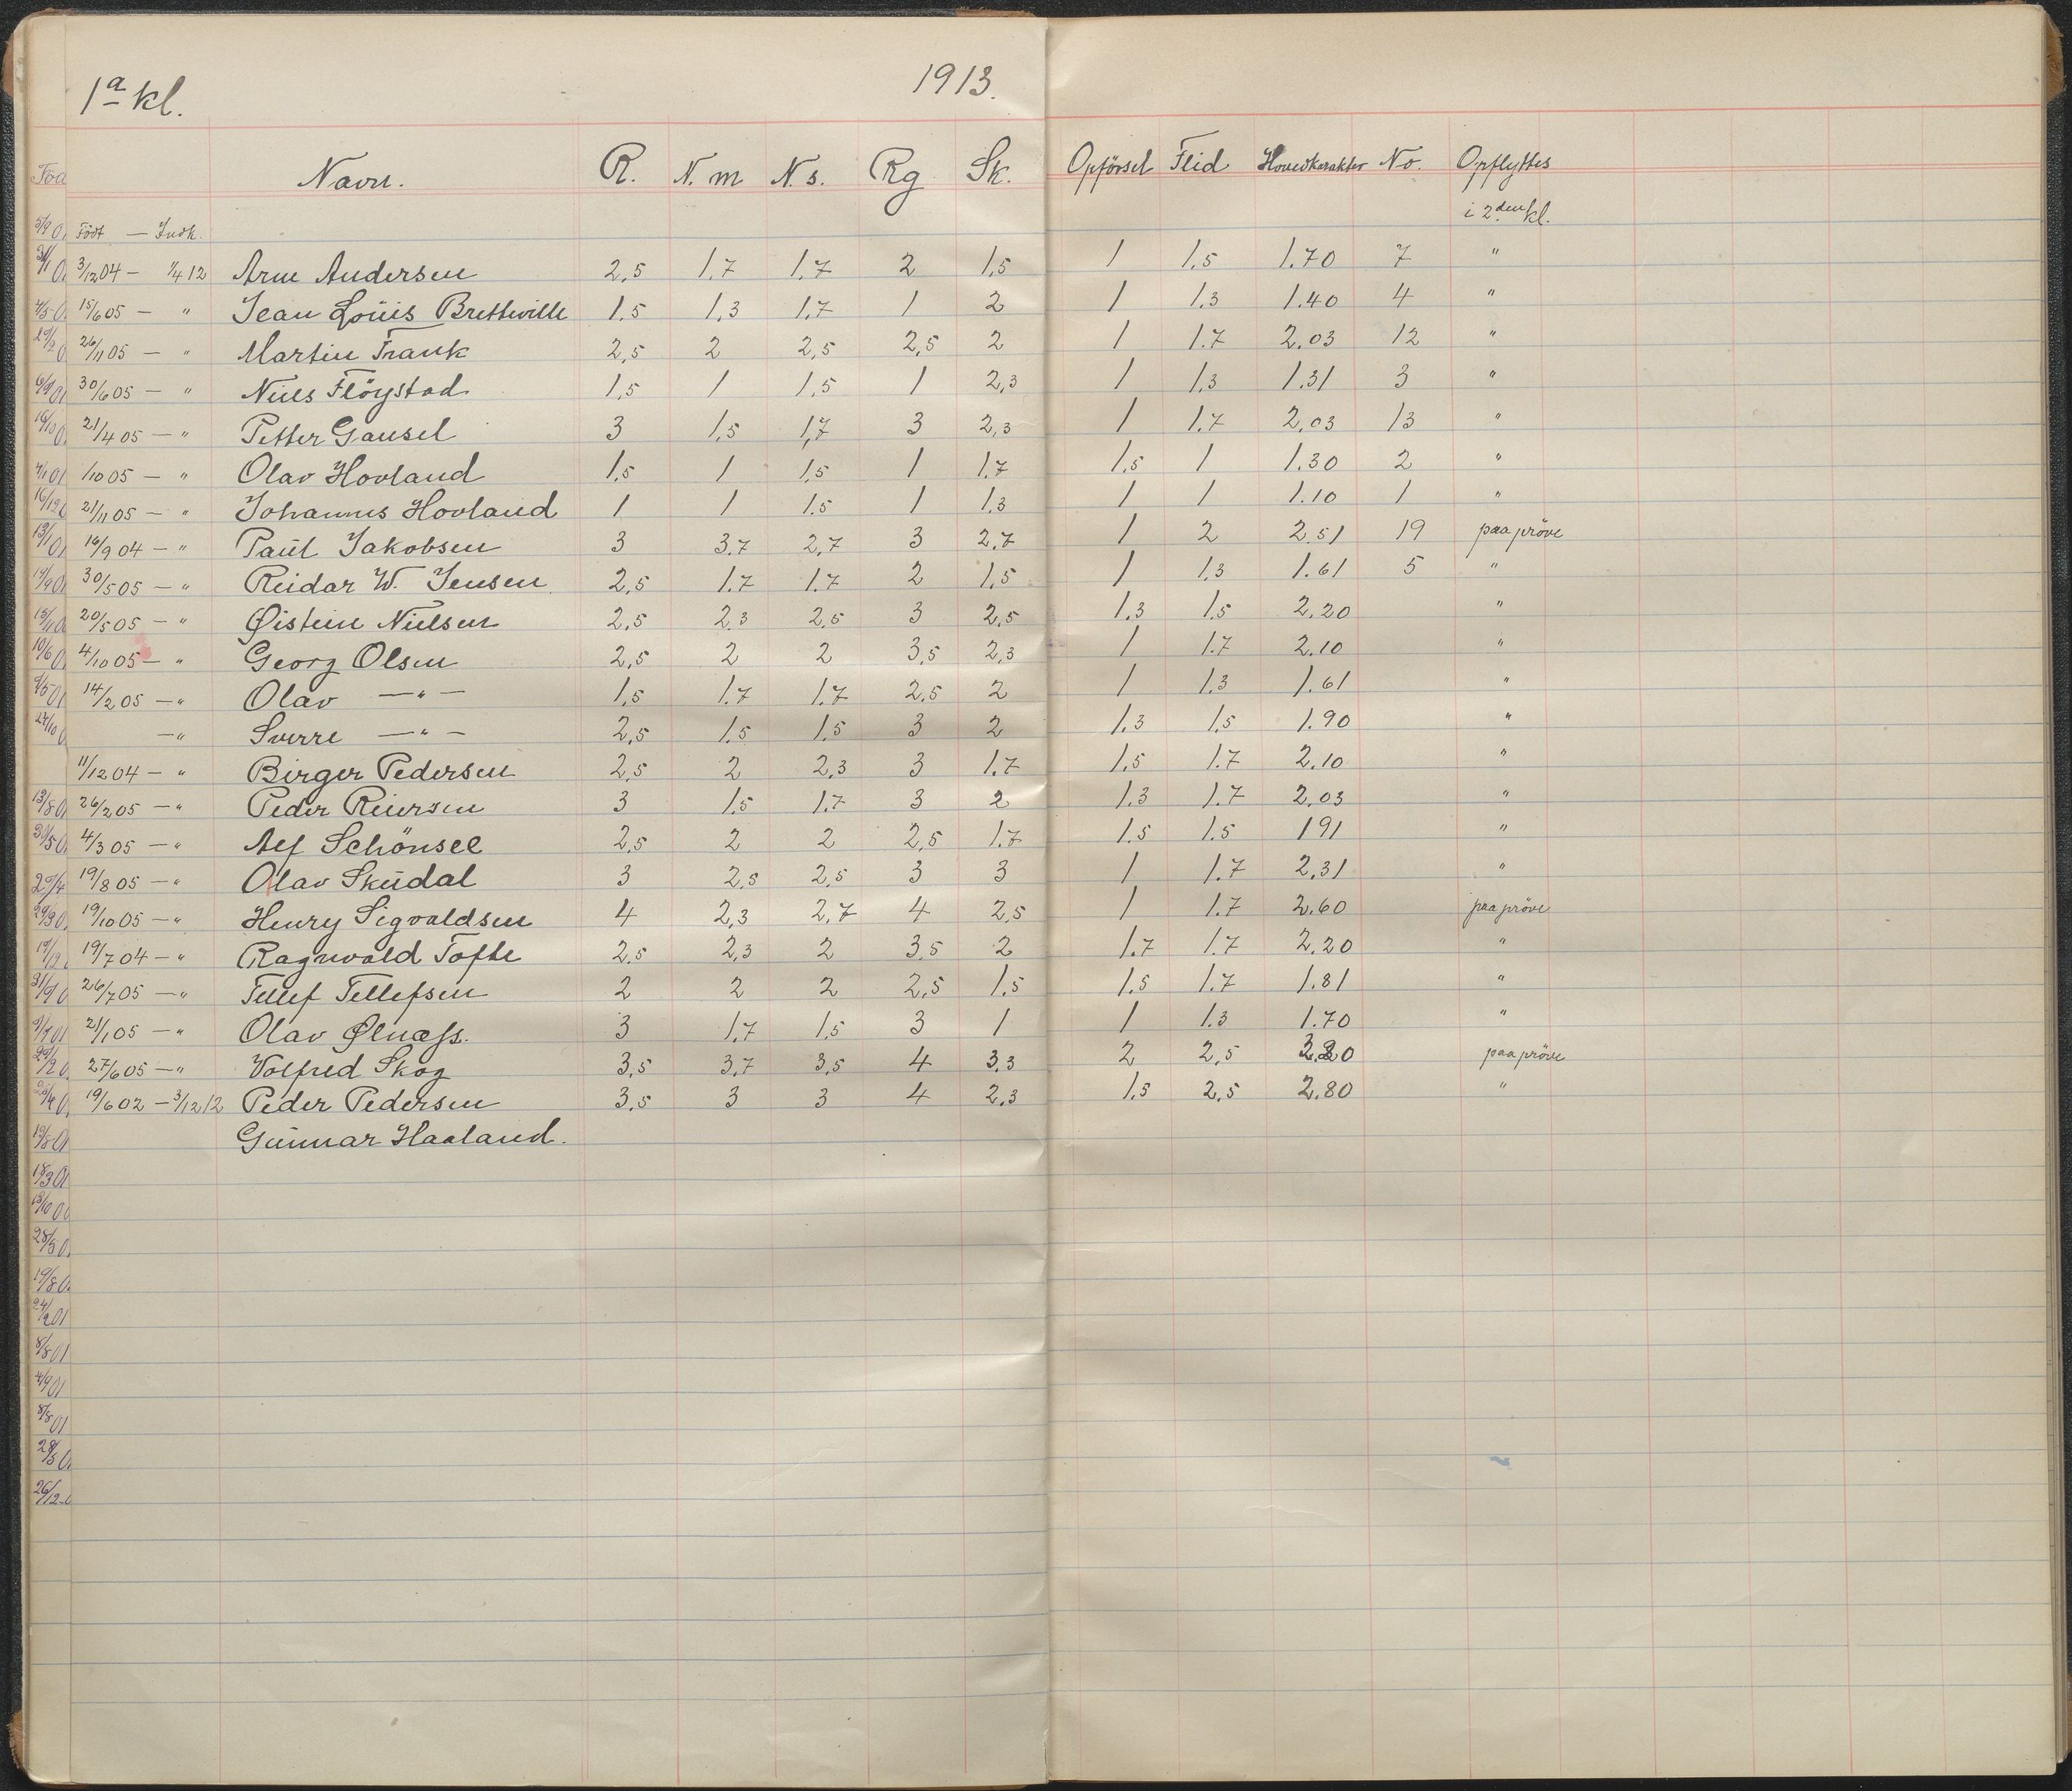 1ª kl. 1913.
Navn. R. N. m N. s. Rg Sk. Opförsel Flid Hovedkarakter No. Opflyttes
Födt — Indk. i 2den kl.
3/12 04 — 1/4 12 Arne Andersen 2,5 1,7 1,7 2 1,5 1 1.5 1.70 7 "
15/6 05 — " Jean Louis Bretteville 1.5 1,3 1,7 1 2 1 1.3 1.40 4 "
26/11 05 — " Martin Frank 2,5 2 2,5 2,5 2 1 1.7 2.03 12 "
30/6 05 — " Niels Flöystad 1,5 1 1,5 1 2,3 1 1,3 1.31 3 "
21/4 05 — " Petter Gausel 3 1,5 1,7 3 2,3 1 1.7 2,03 13 "
1/10 05 — " Olav Hovland 1,5 1 1,5 1 1.7 1.5 1 1.30 2 "
21/11 05 — " Johannes Hovland 1 1 1.5 1 1.3 1 1 1.10 1 "
16/9 04 — " Paul Jakobsen 3 3.7 2,7 3 2,7 1 2 2.51 19 paa pröve
30/5 05 — " Reidar W. Jensen 2,5 1.7 1.7 2 1,5 1 1,3 1.61 5 "
20/5 05 — " Øistein Nielsen 2,5 2.3 2,5 3 2,5 1.3 1.5 2.20 "
4/10 05 — " Georg Olsen 2,5 2 2 3,5 2,3 1 1.7 2.10 "
14/2 05 — " Olav — " — 1,5 1.7 1.7 2,5 2 1 1.3 1.61 "
— " Sverre — " — 2,5 1,5 1,5 3 2 1.3 1,5 1.90 "
11/12 04 — " Birger Pedersen 2,5 2 2,3 3 1.7 1.5 1.7 2.10 "
26/2 05 — " Peder Reiersen 3 1.5 1.7 3 2 1.3 1.7 2.03 "
4/3 05 — " Alf Schönsee 2,5 2 2 2,5 1.7 1.5 1.5 191 "
19/8 05 — " Olav Skudal 3 2,5 2,5 3 3 1 1.7 2,31 "
19/10 05 — " Henry Sigvaldsen 4 2,3 2,7 4 2,5 1 1.7 2.60 paa pröve
19/7 04 — " Ragnvald Tofte 2,5 2,3 2 3,5 2 1.7 1.7 2.20 "
26/7 05 — " Tellef Tellefsen 2 2 2 2,5 1.5 1.5 1.7 1.81 "
21/1 05 — " Olav Ølnæss. 3 1.7 1,5 3 1 1 1.3 1.70 "
27/6 05 — " Volfred Skog 3,5 3,7 3,5 4 3,3 2 2,5 3.20 paa pröve
19/6 02 — 3/12 12 Peder Pedersen 3,5 3 3 4 2,3 1.5 2,5 2.80 "
Gunnar Haaland.